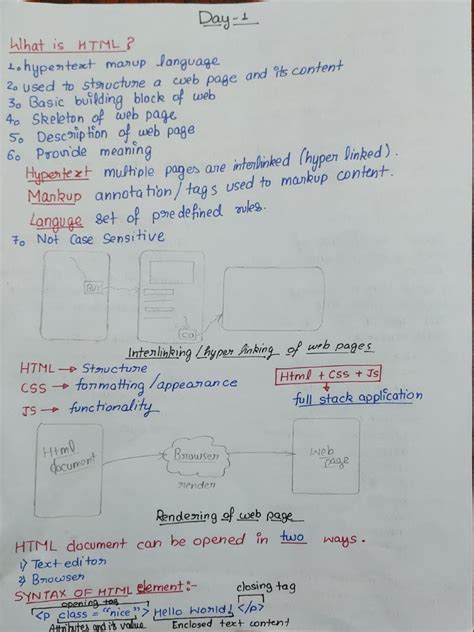 Day-1
What is HTML?
1. hypertext marup language
2. used to structure a web page and its content
3. Basic building block of web
4. Skeleton of web page
5. Description of web page
6. Provide meaning
Hypertext multiple pages are interlinked (hyper linked).
Markup annotation/tags used to markup content.
Languge set of predefined rules.
7. Not Case Sensitive
Interlinking/hyper linking of web pages
HTML → Structure
CSS → formatting/appearance
JS → functionality
Html + CSS + Js
full stack application
Html document
Browser
render
Web page
Rendering of web page
HTML document can be opened in two ways.
1) Text editor
2) Browser
SYNTAX OF HTML Element:-
opening tag
closing tag
<p class = "nice"> Hello World! </p>
Attributes and its value
Enclosed text content